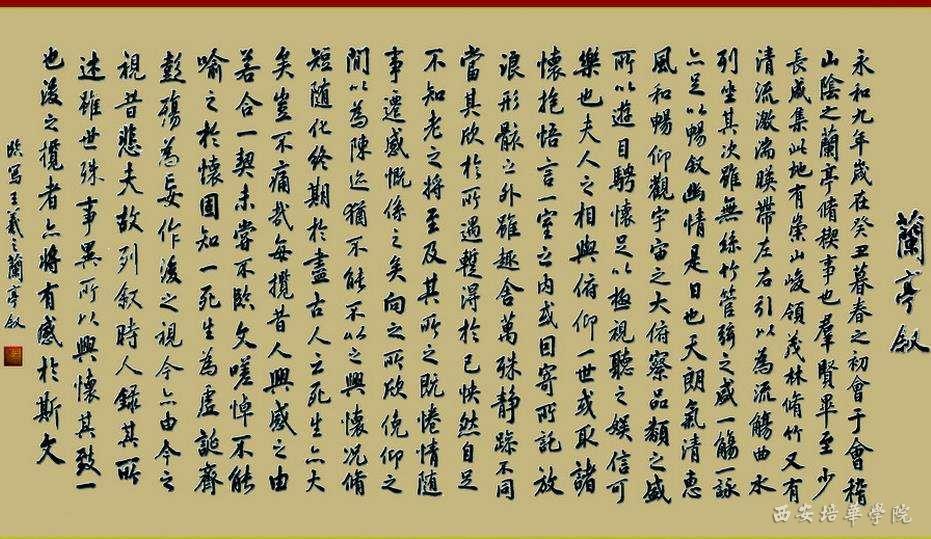 蘭亭叙
永和九年歲在癸丑暮春之初會于會稽
山陰之蘭亭脩禊事也羣賢畢至少
長咸集此地有崇山峻領茂林脩竹又有
清流激湍暎帶左右引以為流觴曲水
列坐其次雖無絲竹管弦之盛一觴一詠
亦足以暢叙幽情是日也天朗氣清惠
風和暢仰觀宇宙之大俯察品類之盛
所以遊目騁懷足以極視聽之娛信可
樂也夫人之相與俯仰一世或取諸
懷抱悟言一室之内或因寄所託放
浪形骸之外雖趣舍萬殊静躁不同
當其欣於所遇蹔得於己怏然自足
不知老之將至及其所之既惓情随
事遷感慨係之矣向之所欣俛仰之
間以為陳迹猶不能不以之興懷况脩
短随化終期於盡古人云死生亦大
矣豈不痛哉每攬昔人興感之由
若合一契未嘗不臨文嗟悼不能
喻之於懷固知一死生為虚誕齊
彭殤為妄作後之視今亦由今之
視昔悲夫故列叙時人錄其所
述雖世殊事異所以興懷其致一
也後之攬者亦將有感於斯文
臨写王羲之蘭亭叙
西安培華學院